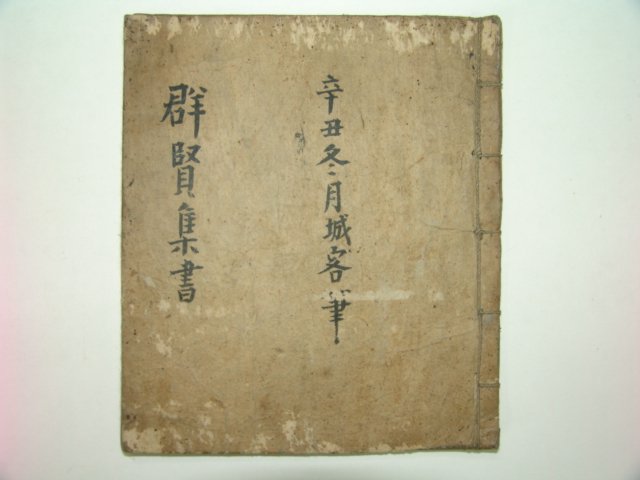 辛丑冬月城客筆
群賢集書